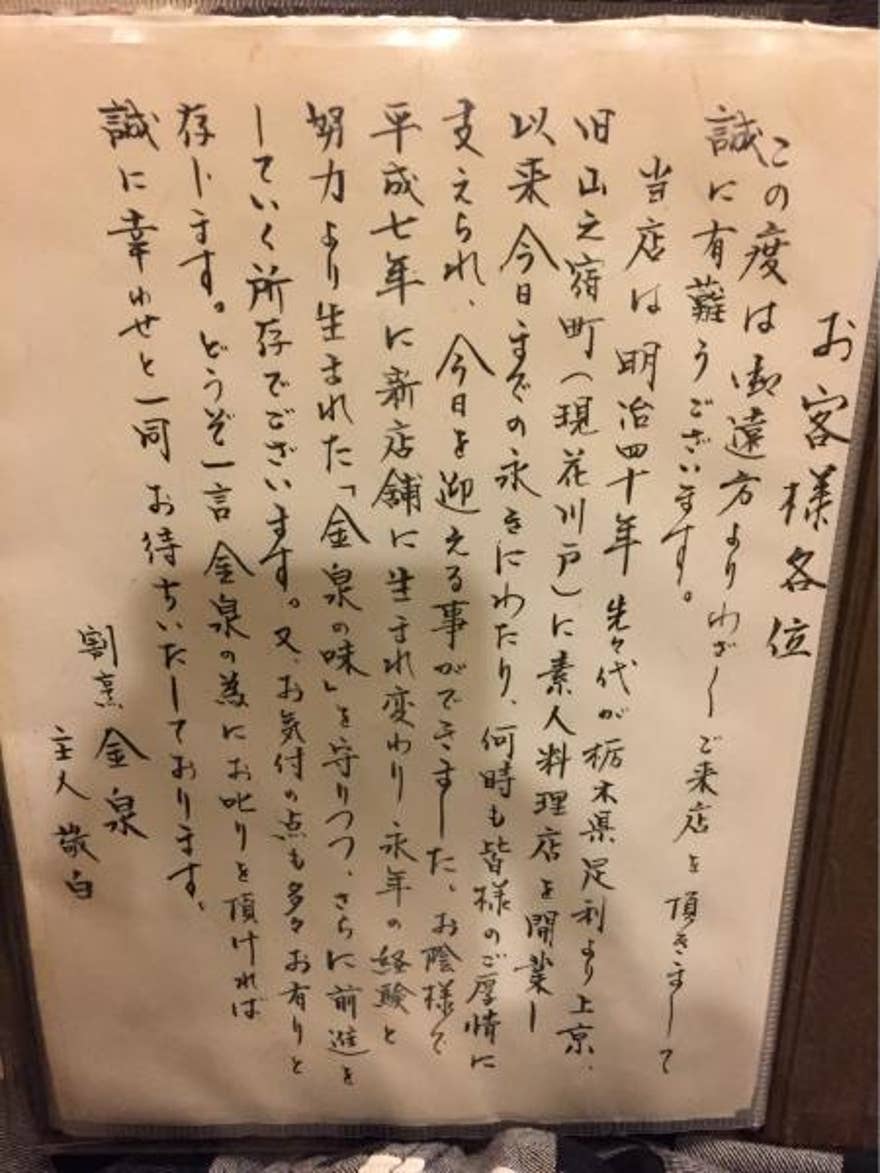 お客様各位
この度は御遠方よりわざ〳〵ご来店を頂きまして
誠に有難うございます。
当店は明治四十年 先々代が栃木県足利より上京、
旧山之宿町（現花川戸）に素人料理店を開業し
以来今日までの永きにわたり、何時も皆様のご厚情に
支えられ、今日を迎える事ができました。お陰様で
平成七年に新店舗に生まれ変わり永年の経験と
努力より生まれた「金泉の味」を守りつつ、さらに前進を
していく所存でございます。又、お気付の点も多々お有りと
存じます。どうぞ一言金泉の為にお叱りを頂ければ
誠に幸わせと一同お待ちいたしております。
割烹 金泉
主人 敬白